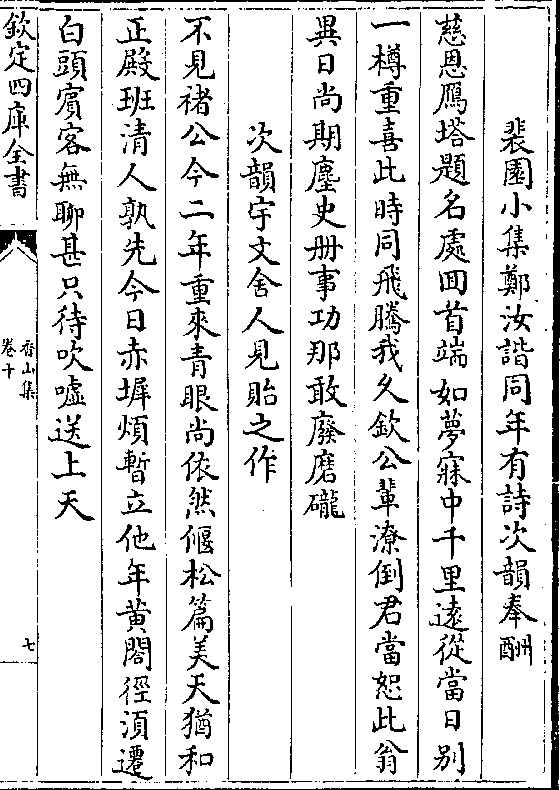 裴園小集鄭汝諧同年有詩次韻奉酬
慈恩鴈塔題名處囬首端如夢寐中千里逺從當日别
一樽重喜此時同飛騰我久欽公輩潦倒君當恕此翁
異日尚期塵史册事功那敢廢磨礲
次韻宇文舍人見貽之作
不見褚公今二年重來青眼尚依然偃松篇美天猶和
正殿班清人孰先今日赤墀煩暫立他年黄閣徑湏遷
白頭賔客無聊甚只待吹嘘送上天
欽定四庫全書
香山集
卷十
七